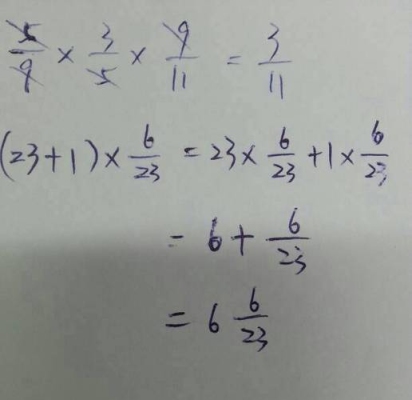 5/9 × 3/5 × 9/11 = 3/11
(23+1) × 6/23 = 23 × 6/23 + 1 × 6/23
= 6 + 6/23
= 6 6/23